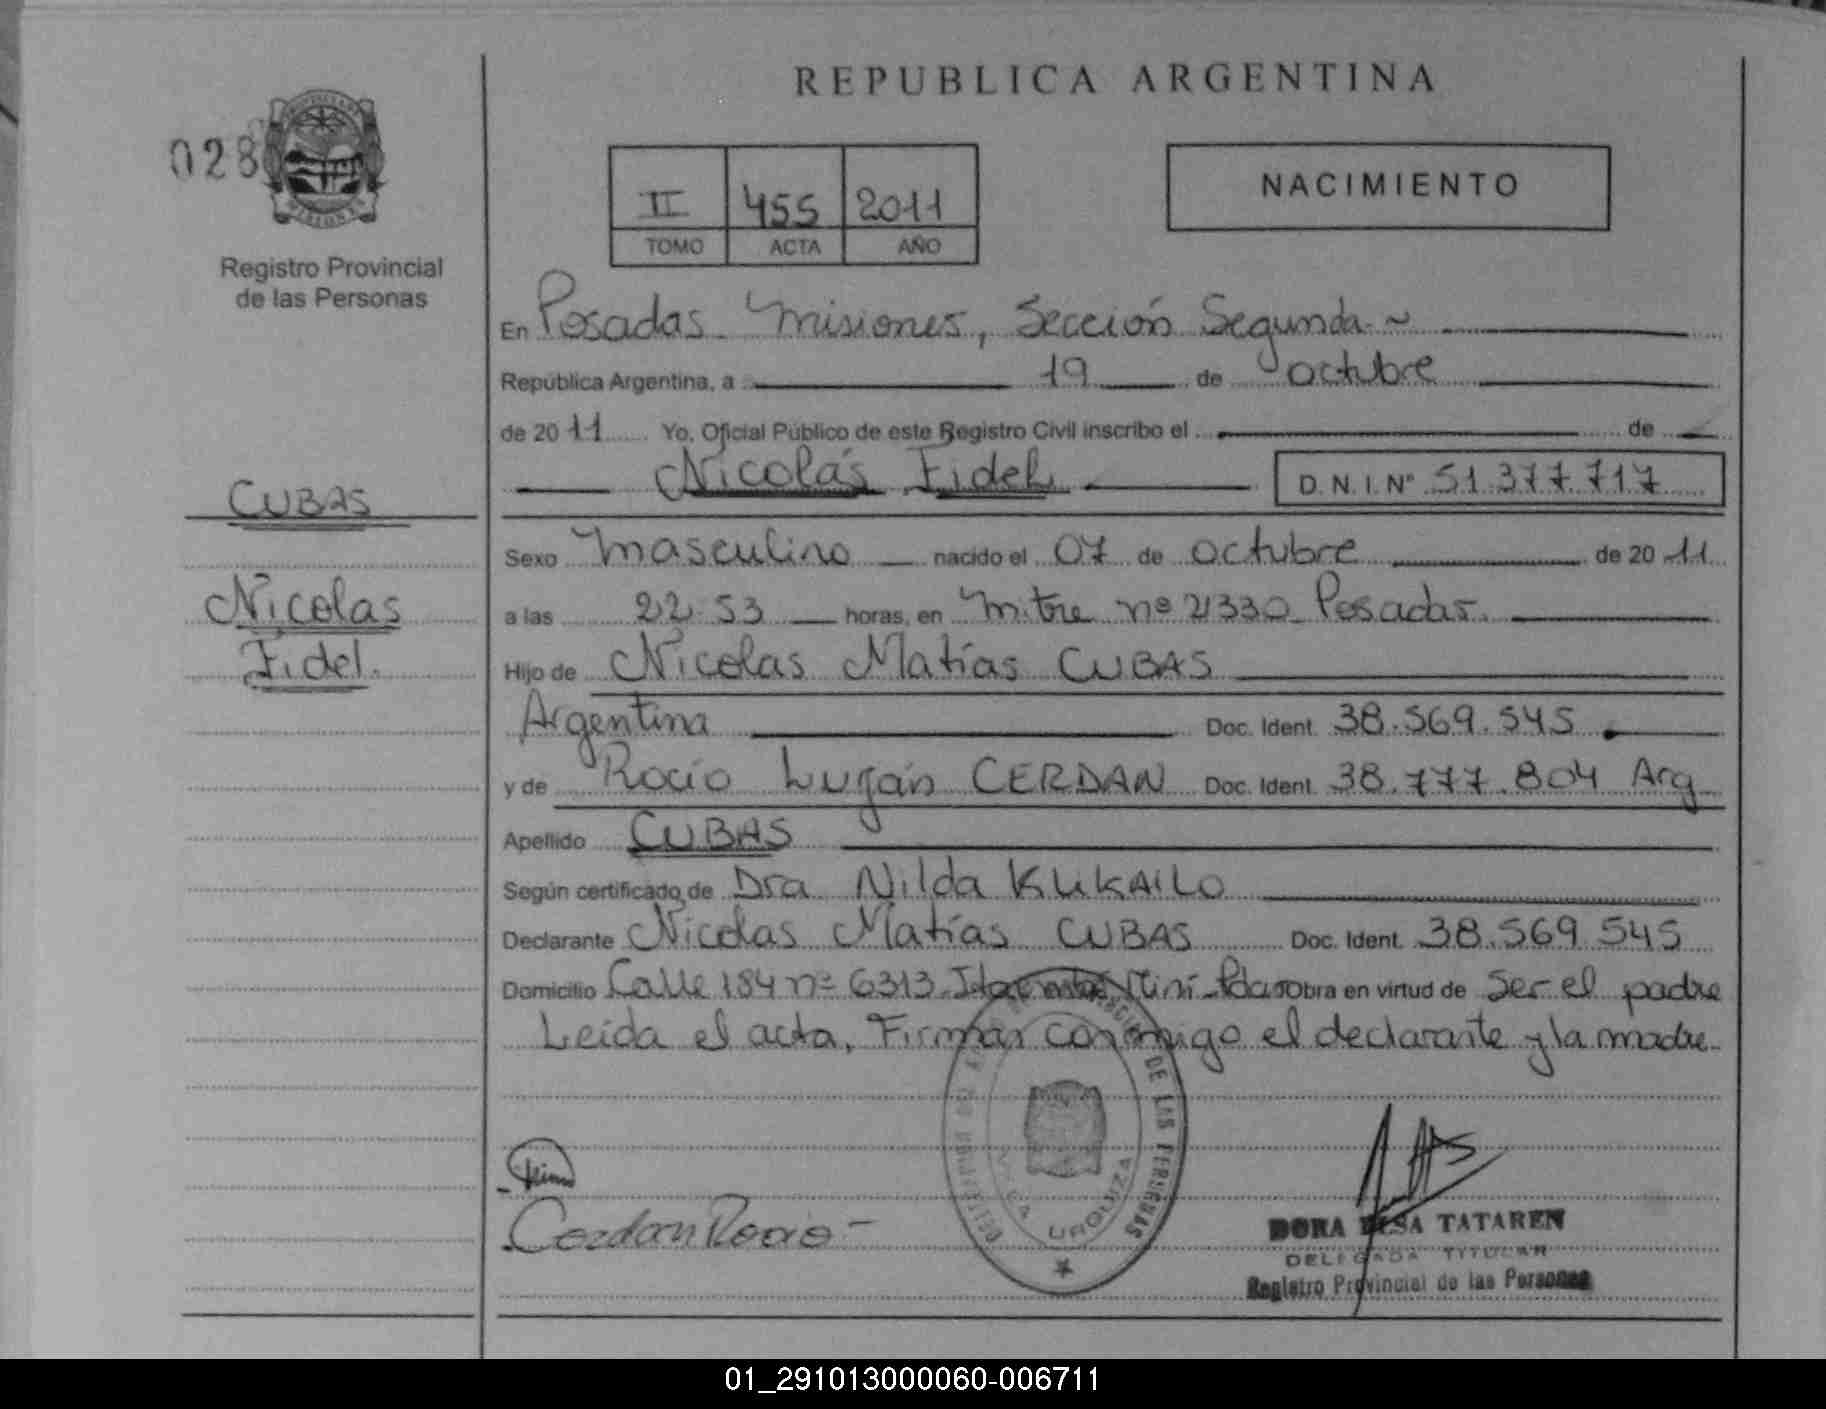 REPUBLICA ARGENTINA
028
Registro Provincial
de las Personas
II 455 2011
TOMO ACTA AÑO
NACIMIENTO
En Posadas Misiones, Sección Segunda
República Argentina, a 19 de octubre
de 2011 Yo, Oficial Público de este Registro Civil inscribo el de
Nicolás Fidel D.N.I.Nº 51.377.717
CUBAS
Nicolas
Fidel.
Sexo Masculino nacido el 07 de octubre de 2011
a las 22 53 horas, en Mitre nº 2330 Posadas.
Hijo de Nicolas Matías CUBAS
Argentina Doc. Ident. 38.569.545
y de Rocío Luján CERDAN Doc. Ident. 38.777.804 Arg
Apellido CUBAS
Según certificado de Dra Nilda KLIKAILO
Declarante Nicolas Matías CUBAS Doc. Ident. 38.569 545
Domicilio Calle 184 nº 6313 Miní Obra en virtud de ser el padre
Leída el acta, Firman conmigo el declarante y la madre
DE LAS PERSONAS
URQUIZA
Cerdan Rocio
DORA ELSA TATAREN
DELEGADA TITULAR
Registro Provincial de las Personas
01_291013000060-006711